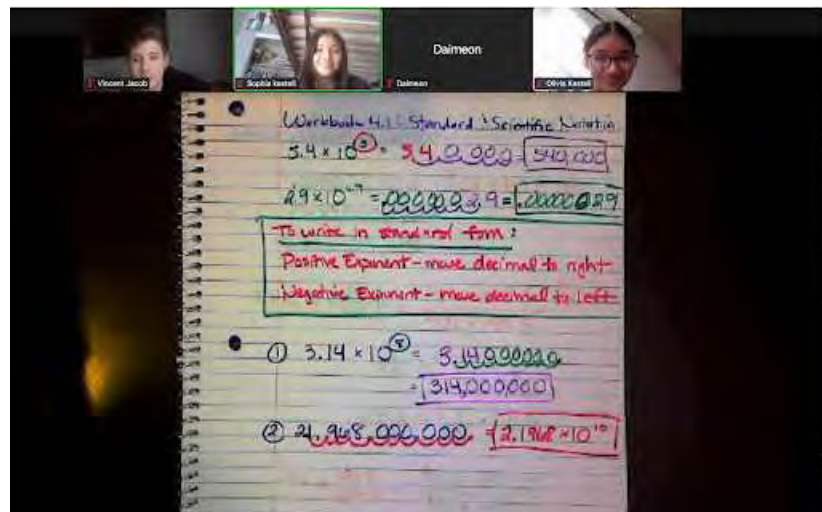 Daimeon
Vincent Jacob
Sophia kestell
Daimeon
Olivia Kestell
Workbook 4.1: Standard Scientific Notation
5.4 × 10 = 540,000
2.9 × 10⁻⁷ = .00000029 = .00000029
To write in standard form:
Positive Exponent - move decimal to right
Negative Exponent - move decimal to left
① 3.14 × 10⁸ = 3.14000000
= 314,000,000
② 21,968,000,000 = 2.1968 × 10¹⁰